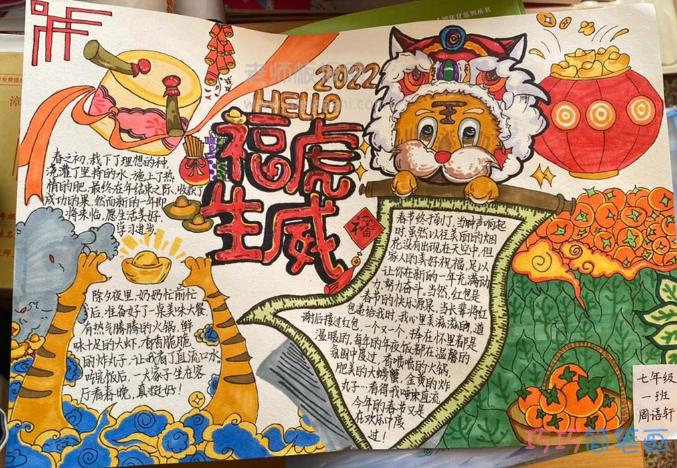 2022
HELLO
福虎
生威
福
春之初，栽下了理想的种，
浇灌了坚持的水，施上了热
情的肥，最终在年结束之际，收获了
成功的果。然而新的一年即
将来临，愿生活美好，
学习进步。
除夕夜里，奶奶忙前忙
后，准备好了一桌美味大餐，
有热气腾腾的火锅，鲜
味十足的大虾，香香脆脆
的炸丸子，让我看了直流口水
吃完饭后，一大家子坐在客
厅看春晚，真挺好！
春节终于到了，当钟声响起
时虽然以往美丽的烟
花没有出现在天空中，但
家人的美好祝福，足以
让你在新的一年充满动
力，努力奋斗。当然，红包是
春节的快乐源泉，当长辈将红
包递给我时，我心里美滋滋的，道
谢后接过红包，一个又一个，捧在怀里都是
温暖的，每年的年夜饭都在温馨的
氛围中度过，有喷喷的火锅，
肥美的大螃蟹，金黄的炸
丸子…看得我口水直流
今年的春节又是
在欢乐中度
过！
七年级
一班
周语轩
巧巧简笔画